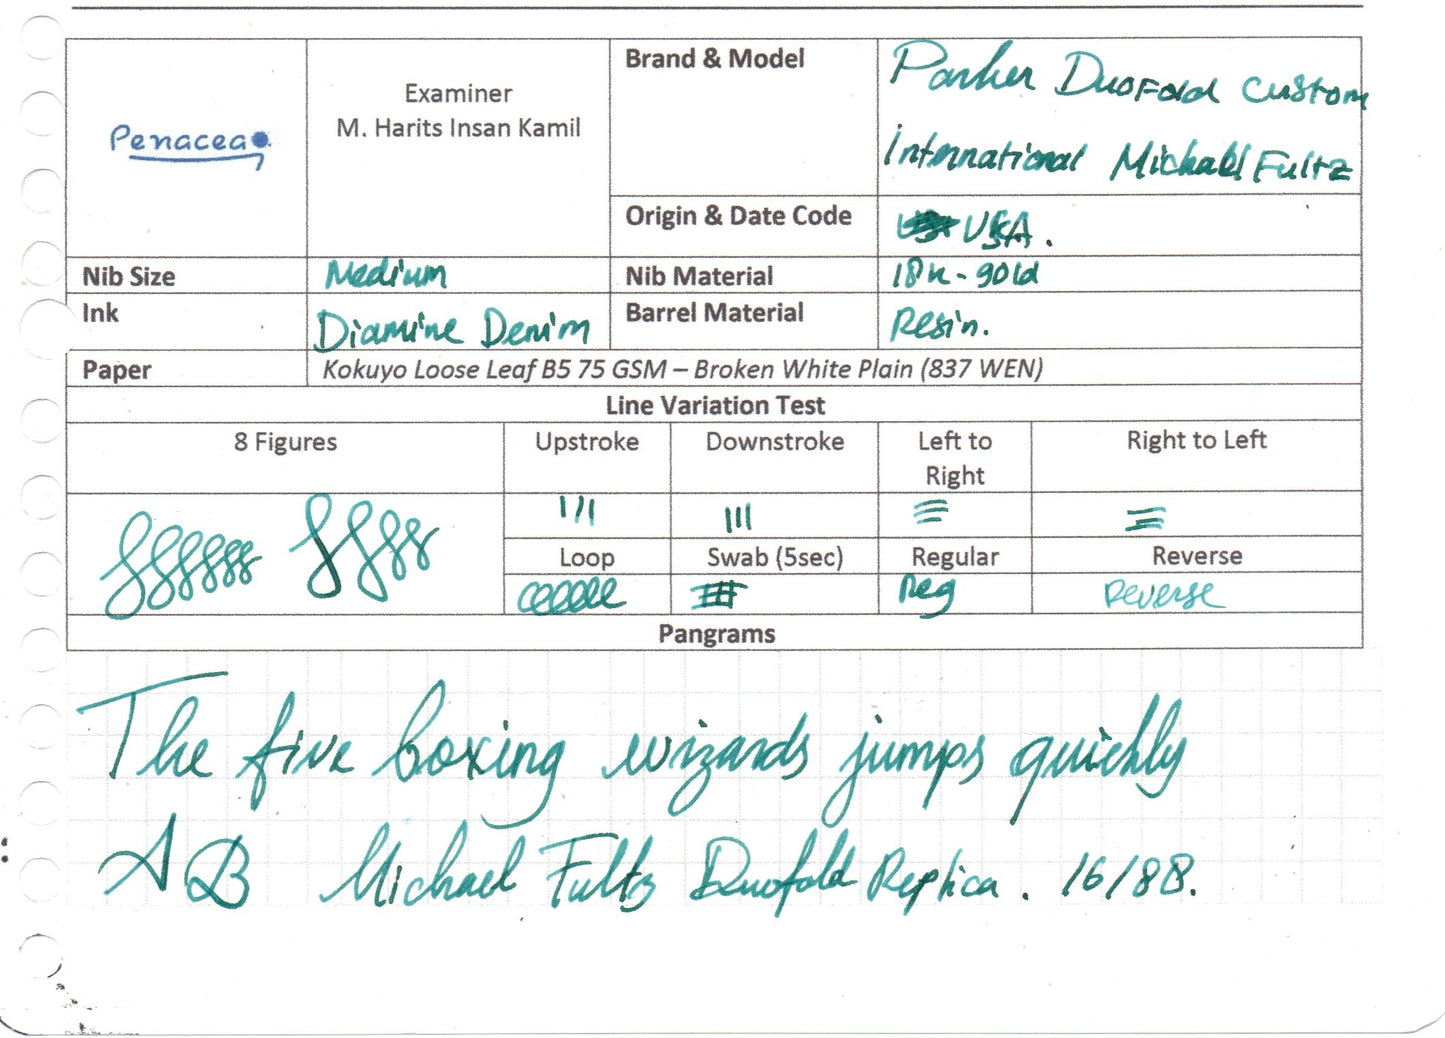 Penacea
Examiner
M. Harits Insan Kamil
Brand & Model
Parker Duofold Custom
International Michael Fultz
Origin & Date Code
USA.
Nib Size
Medium
Nib Material
18k - gold
Ink
Diamine Denim
Barrel Material
Resin.
Paper
Kokuyo Loose Leaf B5 75 GSM – Broken White Plain (837 WEN)
Line Variation Test
8 Figures
Upstroke
Downstroke
Left to
Right
Right to Left
Loop
Swab (5sec)
Regular
Reverse
Reg
Reverse
Pangrams
The five boxing wizards jumps quickly
AB Michael Fultz Duofold Replica. 16/88.